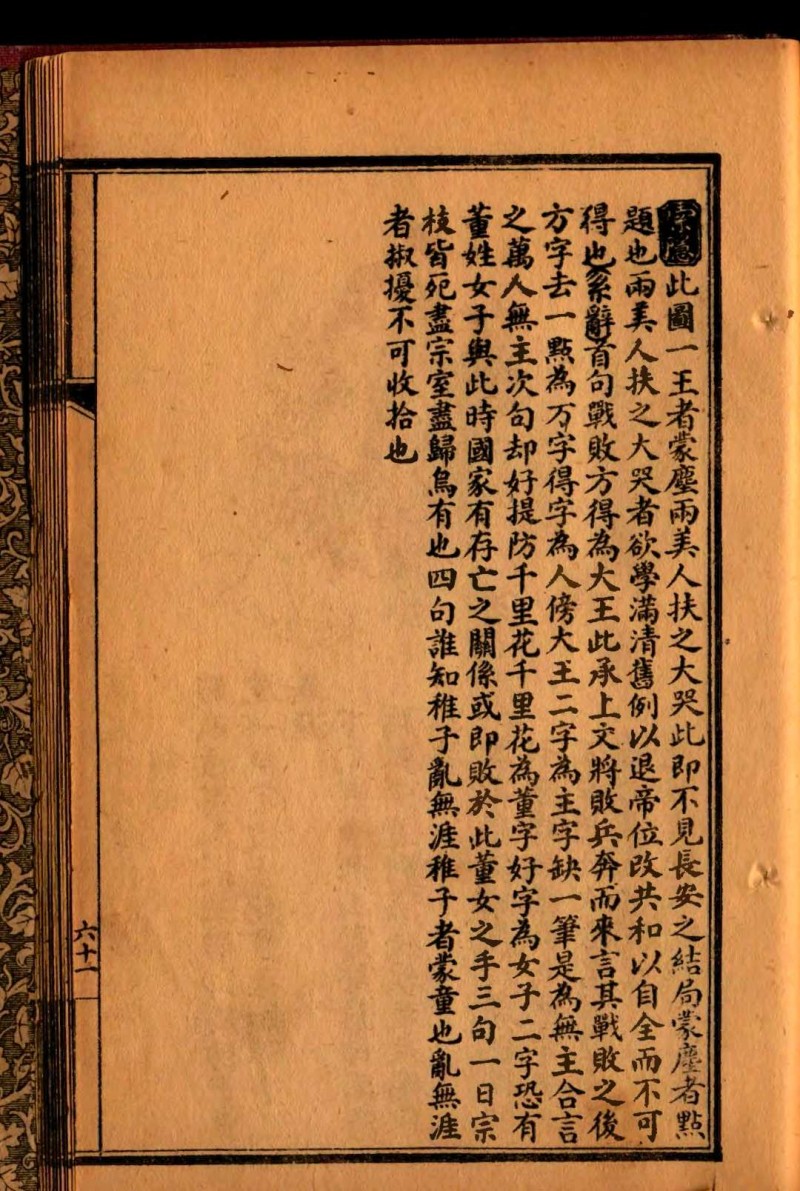 此圖一王者蒙塵兩美人扶之大哭此即不見長安之結局蒙塵者點
題也兩美人扶之大哭者欲學滿清舊例以退帝位改共和以自全而不可
得也系辭首句戰敗方得為大王此承上文將敗兵奔而來言其戰敗之後
方字去一點為万字得字為人傍大王二字為主字缺一筆是為無主合言
之萬人無主次句却好提防千里花千里花為董字好字為女子二字恐有
董姓女子與此時國家有存亡之關係或即敗於此董女之手三句一日宗
枝皆死盡宗室盡歸烏有也四句誰知稚子亂無涯稚子者蒙童也亂無涯
者掓擾不可收拾也
六十一